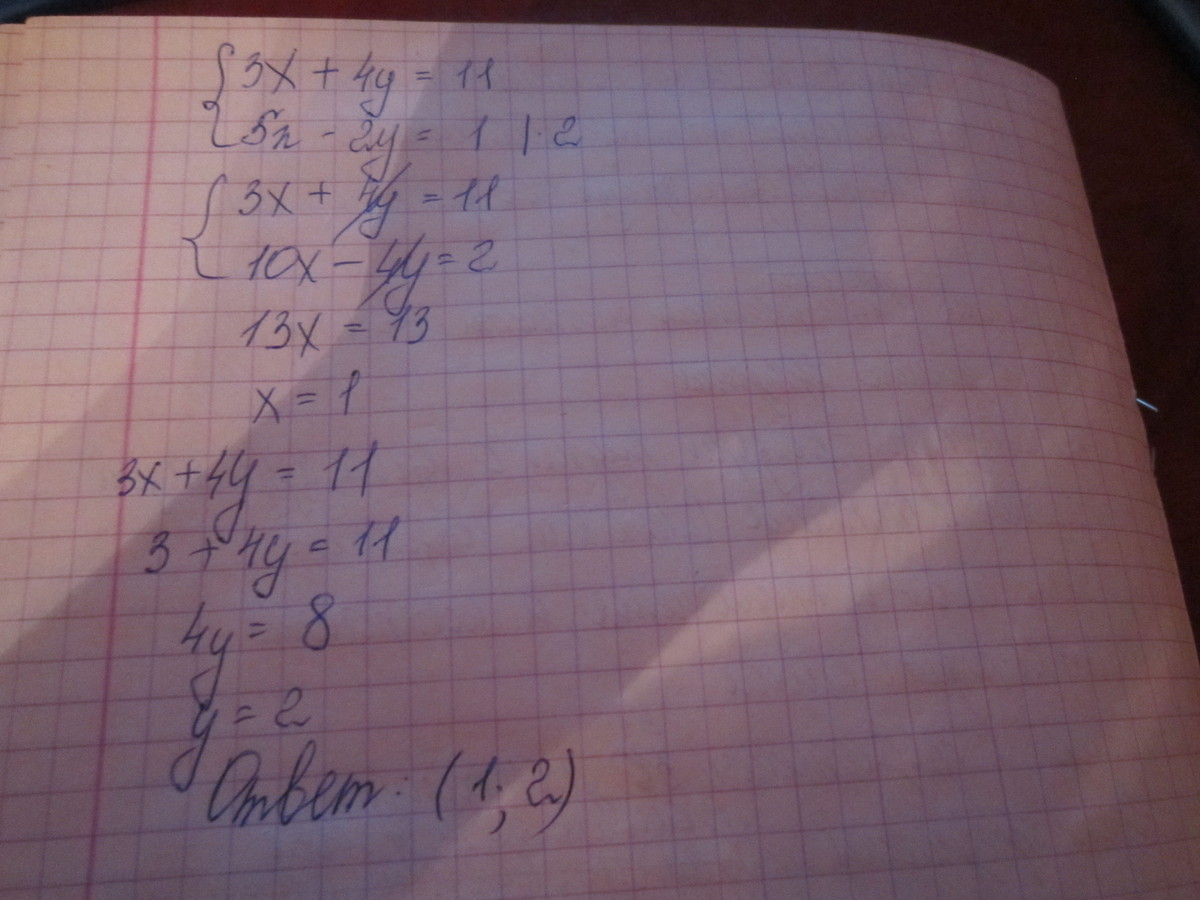 3x + 4y = 11
5x - 2y = 1 | · 2
3x + 4y = 11
10x - 4y = 2
13x = 13
x = 1
3x + 4y = 11
3 + 4y = 11
4y = 8
y = 2
Ответ: (1; 2)